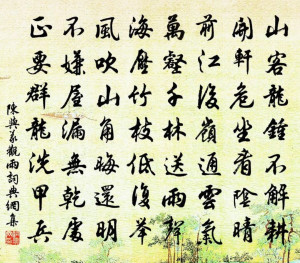 山客龍鍾不解耕
開軒危坐看陰晴
前江後嶺通雲氣
萬壑千林送雨聲
海壓竹枝低復舉
風吹山角晦還明
不嫌屋漏無乾處
正要群龍洗甲兵
陳與義觀雨詞典網集